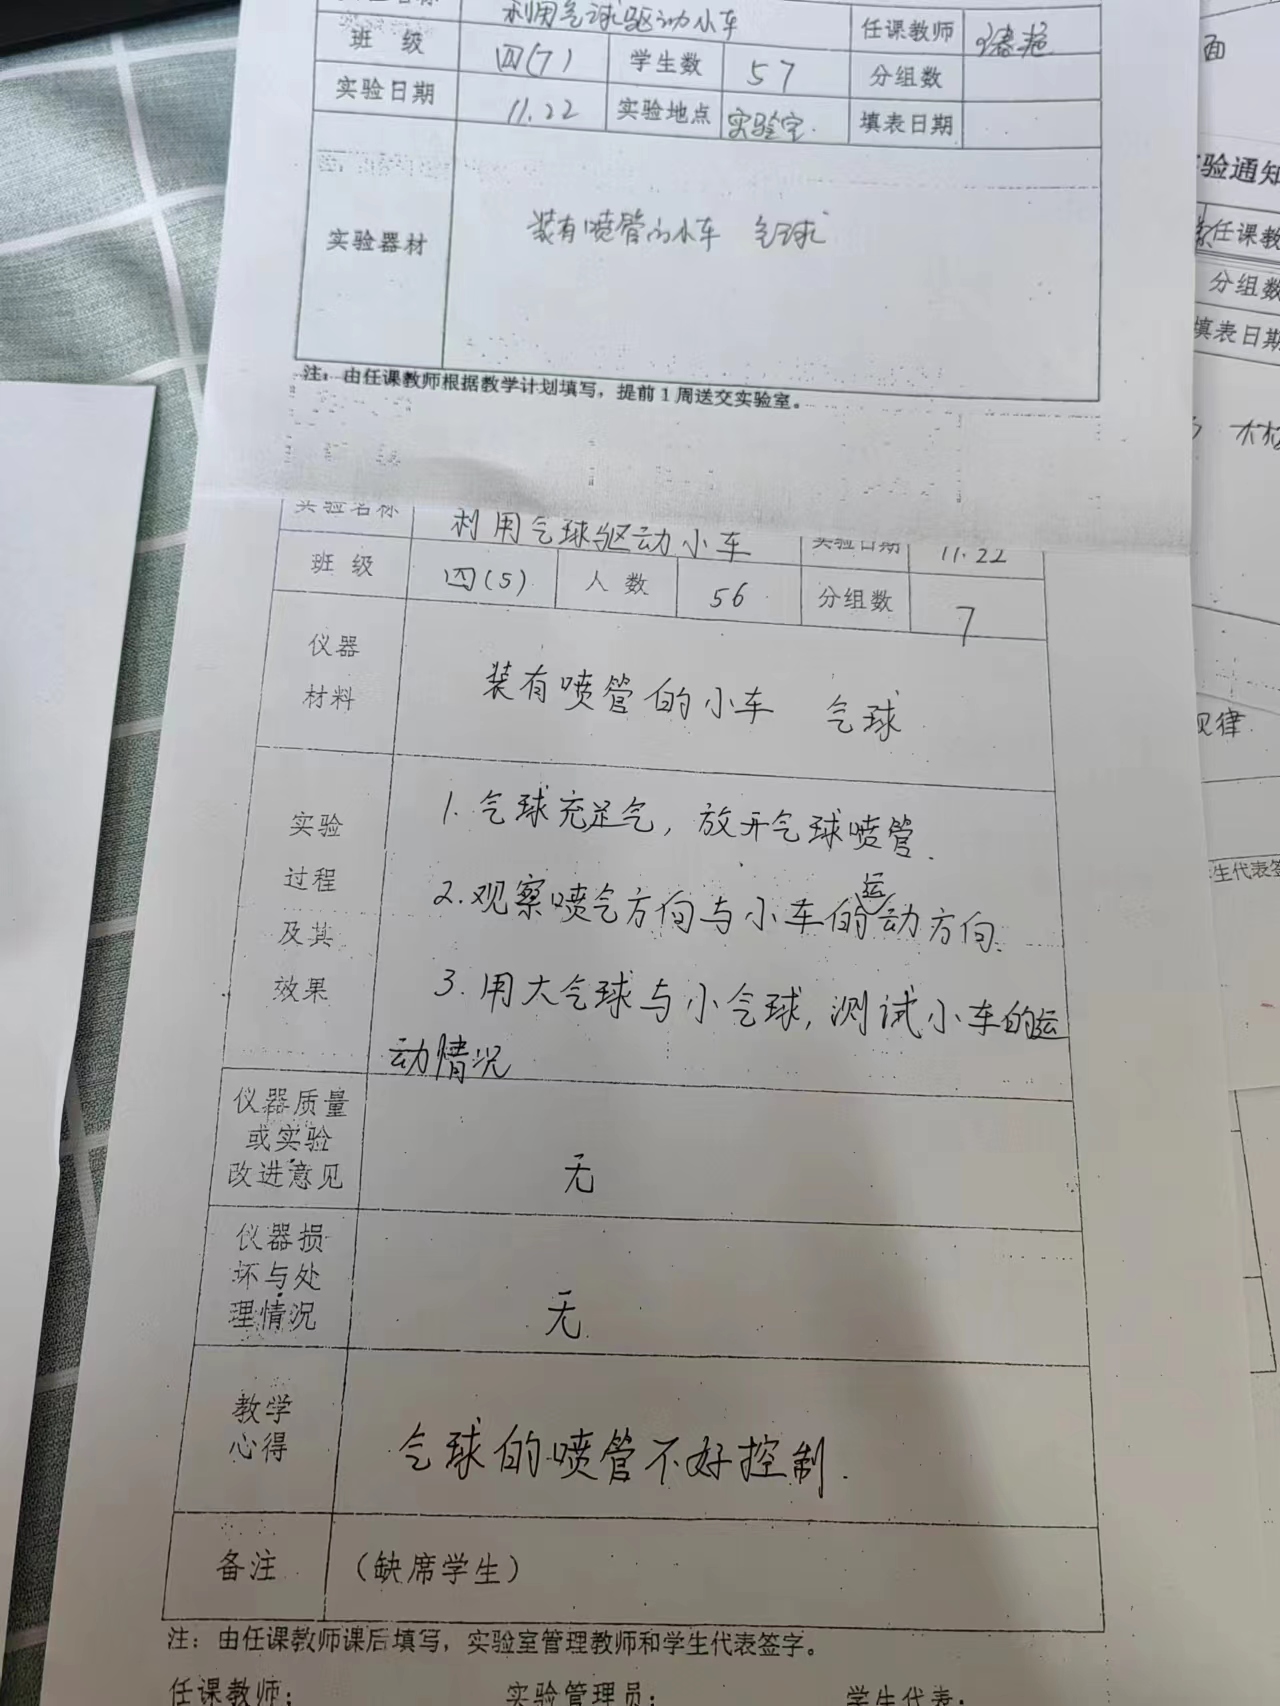 利用气球驱动小车 任课教师
班 级 四(7) 学生数 57 分组数
实验日期 11.22 实验地点 实验室. 填表日期
实验器材 装有喷管的小车 气球
注：由任课教师根据教学计划填写，提前1周送交实验室。
实验名称 利用气球驱动小车 实验日期 11.22
班 级 四(5) 人 数 56 分组数 7
仪器
材料
装有喷管的小车 气球
实验
过程
及其
效果
1.气球充足气，放开气球喷管.
2.观察喷气方向与小车的运动方向.
3.用大气球与小气球，测试小车的运
动情况
仪器质量
或实验
改进意见
无
仪器损
坏与处
理情况
无
教学
心得
气球的喷管不好控制.
备注 （缺席学生）
注：由任课教师课后填写，实验室管理教师和学生代表签字。
任课教师： 实验管理员： 学生代表：
面
验通知
任课教
分组数
填表日期
律
生代表签